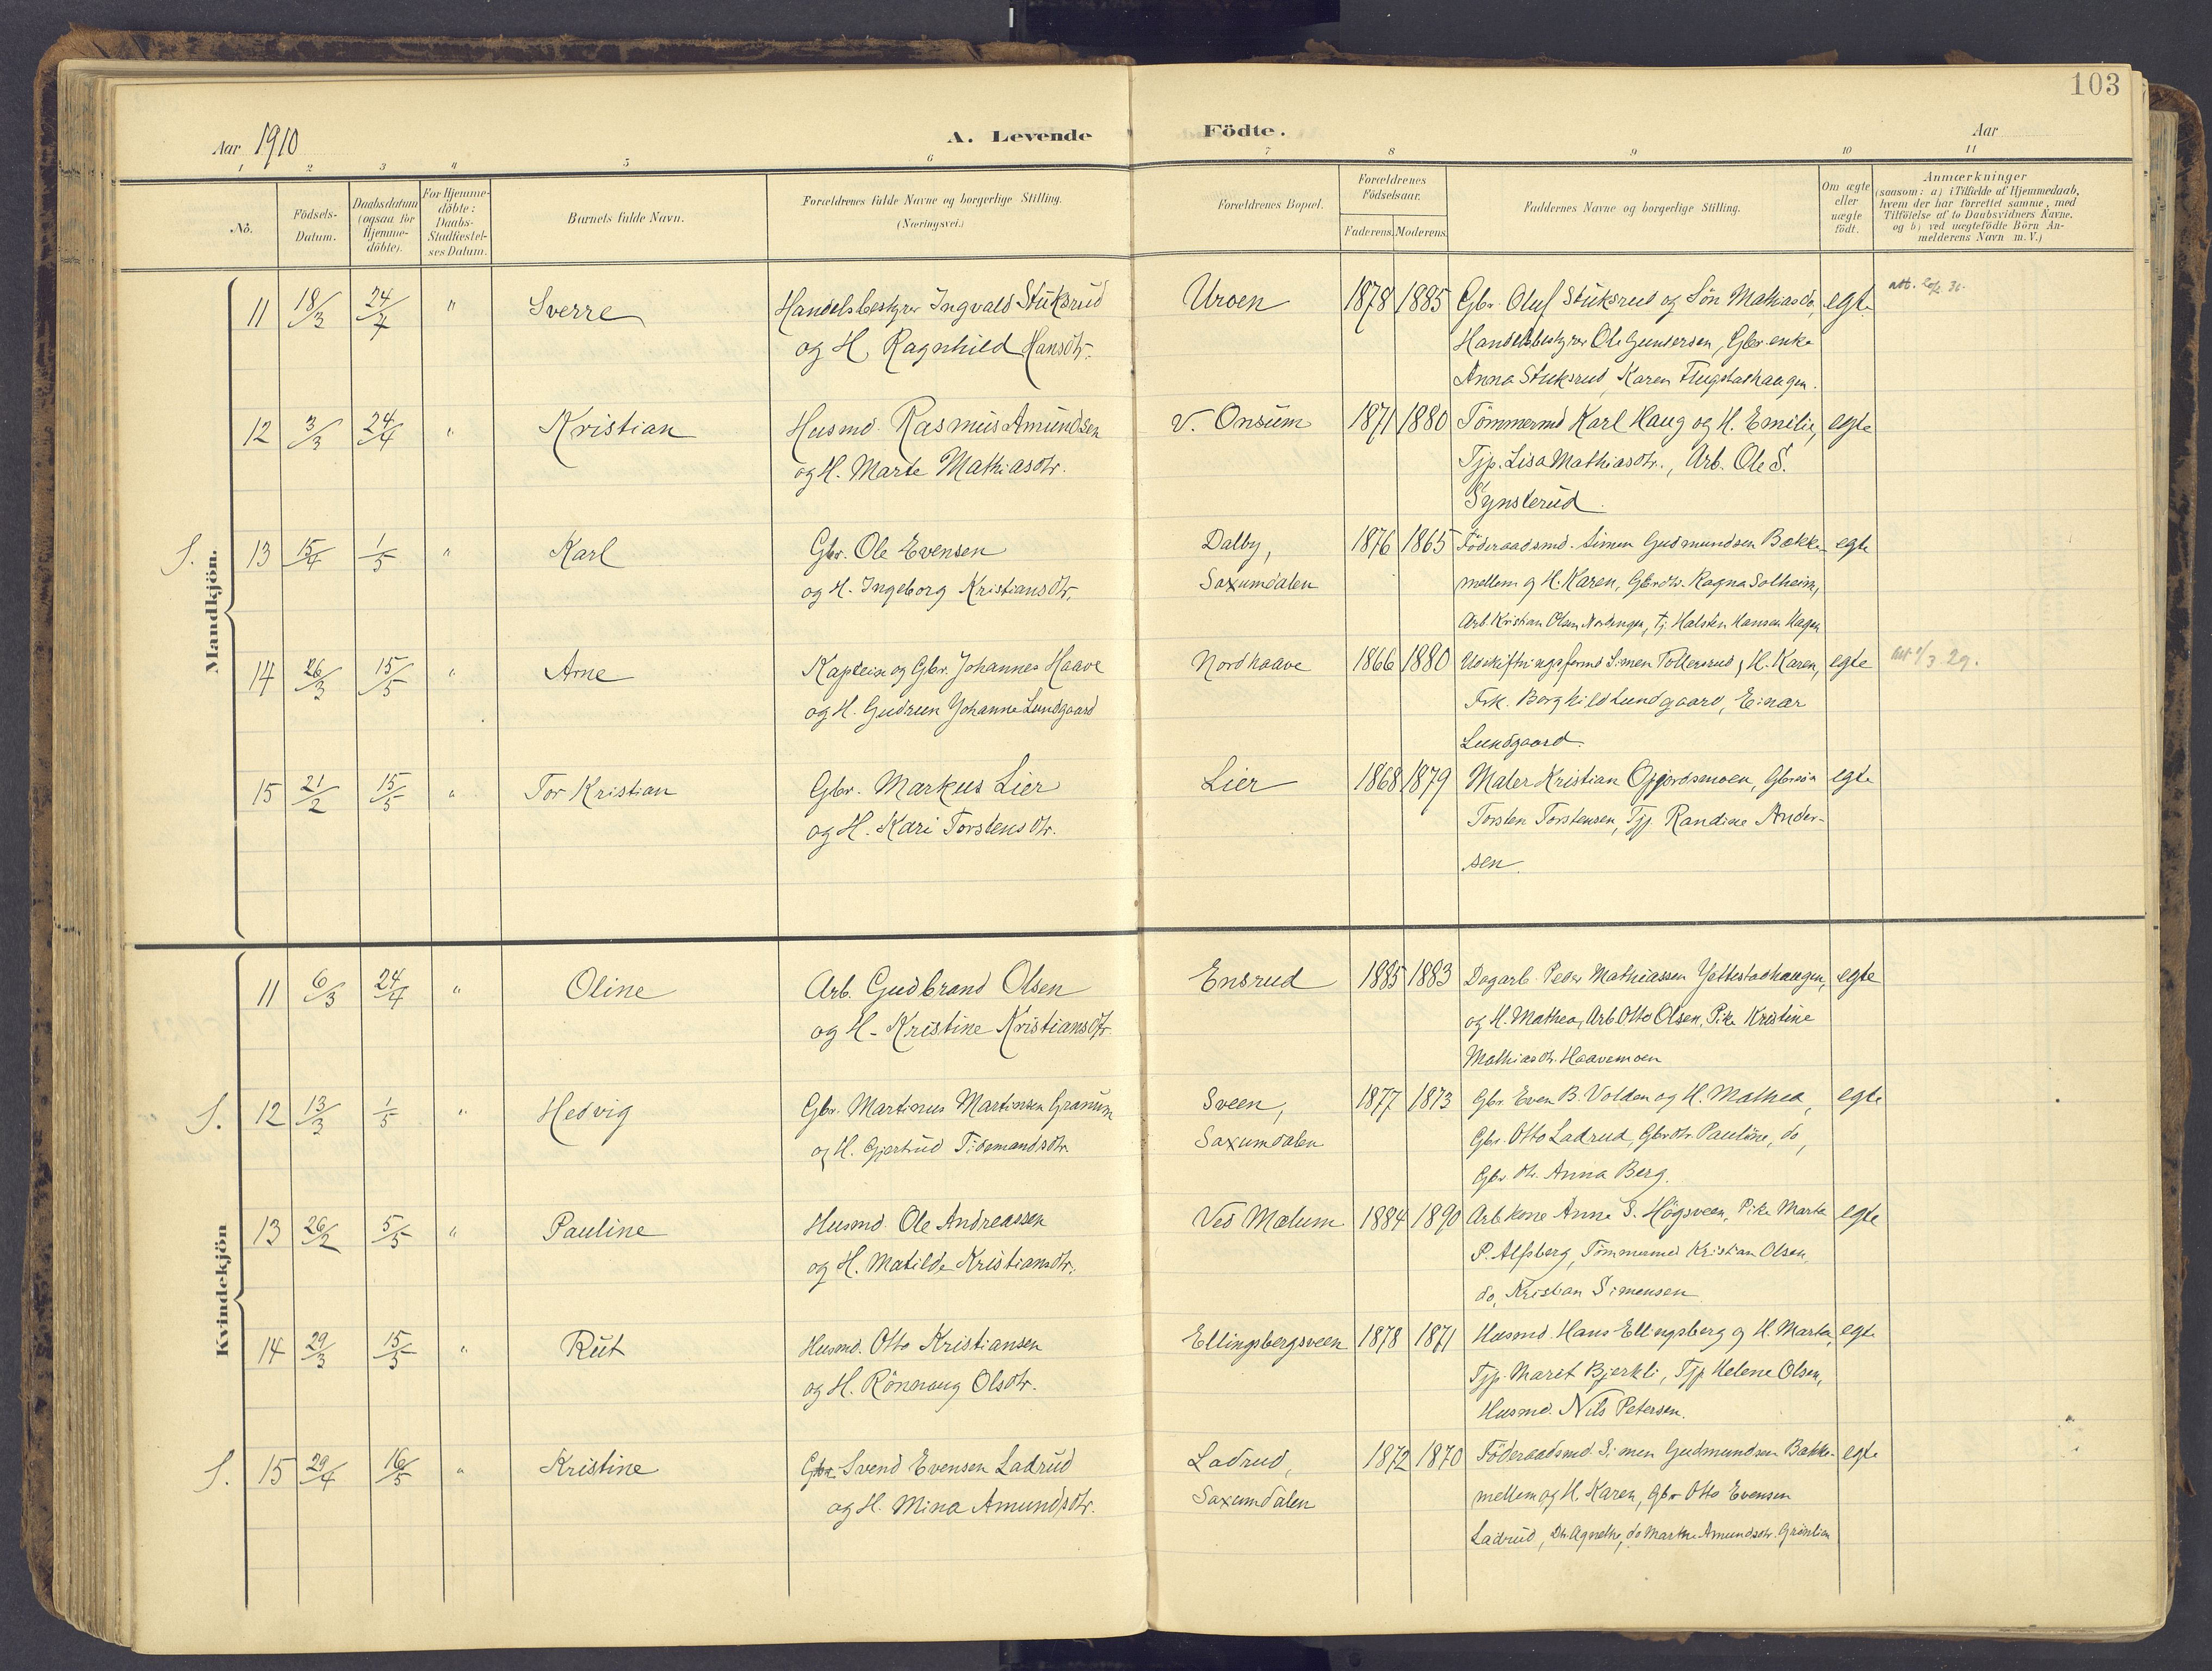 103
Aar 1910
A. Levende Födte.
Aar
1 2 3 4 5 6 7 8 9 10 11
No.
Födsels-Datum.
Daabsdatum (ogsaa for Hjemmedöbte).
For Hjemmedöbte: Daabs-Stadfæstelses Datum.
Barnets fulde Navn.
Forældrenes fulde Navne og borgerlige Stilling. (Næringsvei.)
Forældrenes Bopæl.
Forældrenes Födselsaar.
Faderens. Moderens.
Faddernes Navne og borgerlige Stilling.
Om ægte eller uægte födt.
Anmærkninger
(saasom: a) i Tilfælde af Hjemmedaab,
hvem der har forrettet samme, med
Tilföielse af to Daabsvidners Navne.
og b) ved uægtefödte Börn An-
melderens Navn m. V.)
Mandkjön.
11 18/3 24/4 " Sverre Handelsbestyrer Ingvald Stuksrud Uroen 1878 1885 Gbr. Oluf Stuksrud og Sön Mathias do, egte
og H. Ragnhild Hansdtr. Handelsbestyrer Ole Gundersen, Gbr.enke
Anna Stuksrud, Karen Flugstadhaugen.
12 3/3 24/4 " Kristian Husmd. Rasmus Amundsen v. Onsum 1871 1880 Tömmermd Karl Haug og H. Emilie, egte
og H. Marte Mathiasdtr. Tjp. Lisa Mathiasdtr., Arb. Ole S.
Synsterud.
S. 13 15/4 1/5 " Karl Gbr. Ole Evensen Dalby, 1876 1865 Föderaadsmd. Simen Gudmundsen Bække- egte
og H. Ingeborg Kristiansdtr. Saxumdalen mellem og H. Karen, Gbrdtr. Ragna Solheim,
Arb. Kristian Olsen Nordengen, Tj. Halsten Hansen Hagen
14 26/3 15/5 " Arne Kaptein og Gbr. Johannes Haave Nordhaave 1866 1880 Udskiftningsformd Simen Tollersrud og H. Karen, egte
og H. Gudrun Johanne Lundgaard Frk. Borghild Lundgaard, Einar
Lundgaard.
15 21/2 15/5 " Tor Kristian Gbr. Markus Lier Lier 1868 1879 Maler Kristian Opjordsmoen, Gbrsön egte
og H. Kari Torstensdtr. Torsten Torstensen, Tjp. Randine Ander-
sen.
Kvindekjön
11 6/3 24/4 " Oline Arb. Gudbrand Olsen Ensrud 1885 1883 Dagarb. Peder Mathiassen Jettestadhaugen, egte
og H. Kristine Kristiansdtr. og H. Mathea, Arb. Otto Olsen, Pike Kristine
Mathiasdtr. Haavemoen
S. 12 13/3 1/5 " Hedvig Gbr. Martinus Martinsen Granum Sveen, 1877 1873 Gbr. Even B. Volden og H. Mathea, egte
og H. Gjertrud Tidemandsdtr. Saxumdalen Gbr. Otto Ladrud, Gbrdtr. Pauline, do,
Gbr. dtr. Anna Berg.
13 26/2 5/5 " Pauline Husmd. Ole Andreassen Ved Mælum 1884 1890 Arb kone Anne S. Högsveen, Pike Marta egte
og H. Matilde Kristiansdtr. P. Alfsberg, Tömmermd Kristian Olsen,
do, Kristian Simensen
14 29/3 15/5 " Rut Husmd. Otto Kristiansen Ellingsbergsveen 1878 1871 Husmd. Hans Ellingsberg og H. Marta, egte
og H. Rönnaug Olsdtr. Tjp. Marit Bjerkli, Tjp Helene Olsen,
Husmd. Nils Petersen.
S. 15 29/4 16/5 " Kristine Gbr Svend Evensen Ladrud Ladrud, 1872 1870 Föderaadsmd. Simen Gudmundsen Bække- egte
og H. Mina Amundsdtr. Saxumdalen mellem og H. Karen, Gbr Otto Evensen
Ladrud, Dtr. Agnethe, do Marthe Amundsdtr. Grönlien